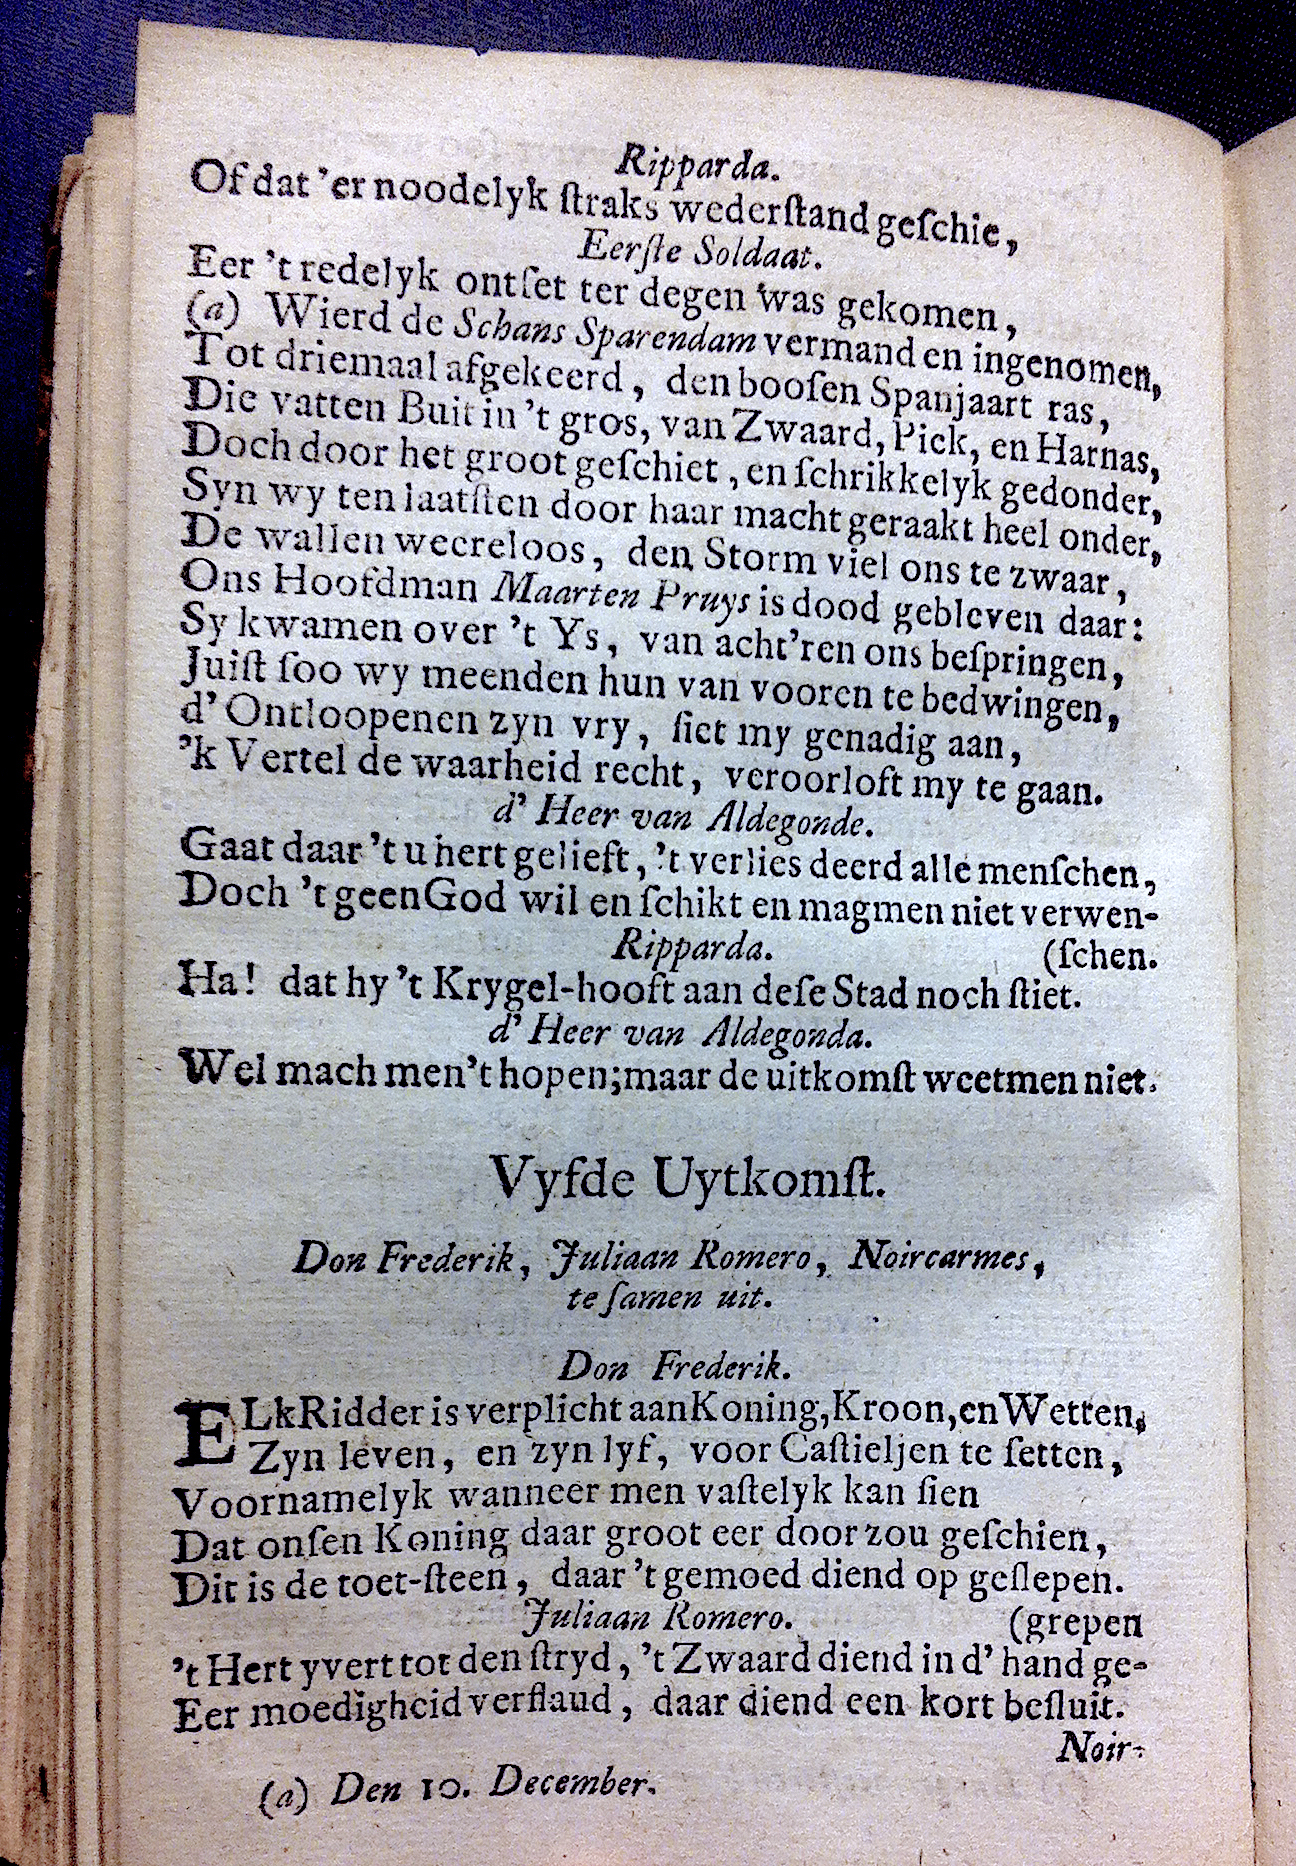 Ripparda.
Of dat 'er noodelyk ſtraks wederſtand geſchie,
Eerſte Soldaat.
Eer 't redelyk ontſet ter degen was gekomen,
(a) Wierd de Schans Sparendam vermand en ingenomen,
Tot driemaal afgekeerd, den booſen Spanjaart ras,
Die vatten Buit in 't gros, van Zwaard, Piek, en Harnas,
Doch door het groot geſchiet, en ſchrikkelyk gedonder,
Syn wy ten laatſten door haar macht geraakt heel onder,
De wallen weereloos, den Storm viel ons te zwaar,
Ons Hoofdman Maarten Pruys is dood gebleven daar:
Sy kwamen over 't Ys, van acht'ren ons beſpringen,
Juiſt ſoo wy meenden hun van vooren te bedwingen,
d' Ontloopenen zyn vry, ſiet my genadig aan,
'k Vertel de waarheid recht, veroorloft my te gaan.
d' Heer van Aldegonde.
Gaat daar 't u hert gelieft, 't verlies deerd alle menſchen,
Doch 't geen God wil en ſchikt en mag men niet verwen-
Ripparda. (ſchen.
Ha! dat hy 't Krygel-hooft aan deſe Stad noch ſtiet.
d' Heer van Aldegonda.
Wel mach men 't hopen; maar de uitkomſt weet men niet.
Vyfde Uytkomſt.
Don Frederik, Juliaan Romero, Noircarmes,
te ſamen uit.
Don Frederik.
ELk Ridder is verplicht aan Koning, Kroon, en Wetten,
Zyn leven, en zyn lyf, voor Caſtieljen te ſetten,
Voornamelyk wanneer men vaſtelyk kan ſien
Dat onſen Koning daar groot eer door zou geſchien,
Dit is de toet-ſteen, daar 't gemoed diend op geſlepen.
Juliaan Romero. (grepen
't Hert yvert tot den ſtryd, 't Zwaard diend in d' hand ge-
Eer moedigheid verflaud, daar diend een kort beſluit.
Noir-
(a) Den 10. December.